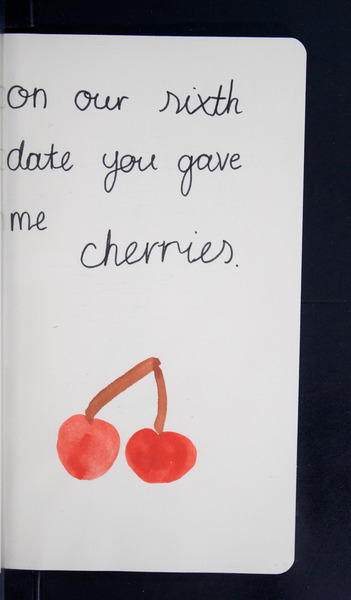 on our sixth
date you gave
me
cherries.